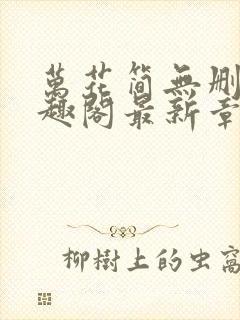 萬花筒無刪
趣閣最新章
柳樹上的虫窩